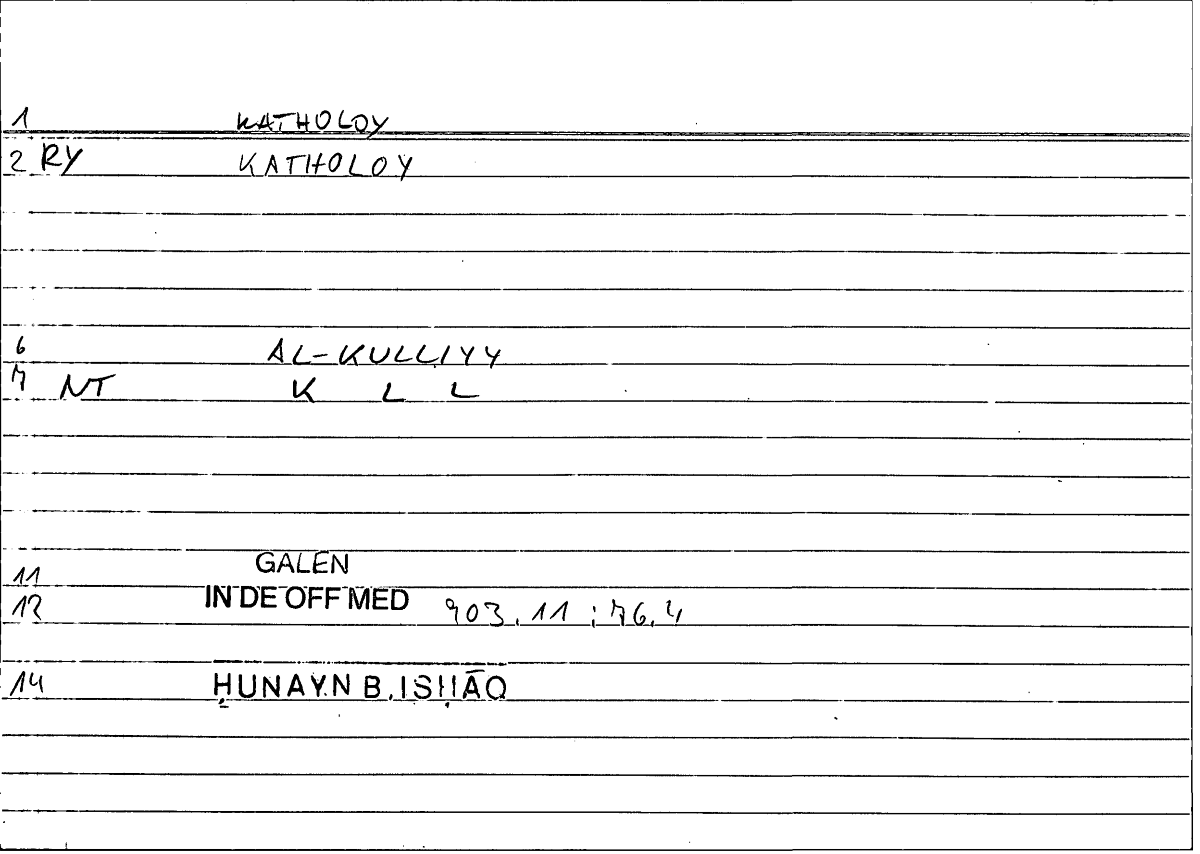 1 KATHOLOY
2 RY KATHOLOY
6 AL-KULLIYY
7 NT K L L
11 GALEN
12 IN DE OFF MED 903.11 ; 76.4
14 ḤUNAYN B. ISḤĀQ